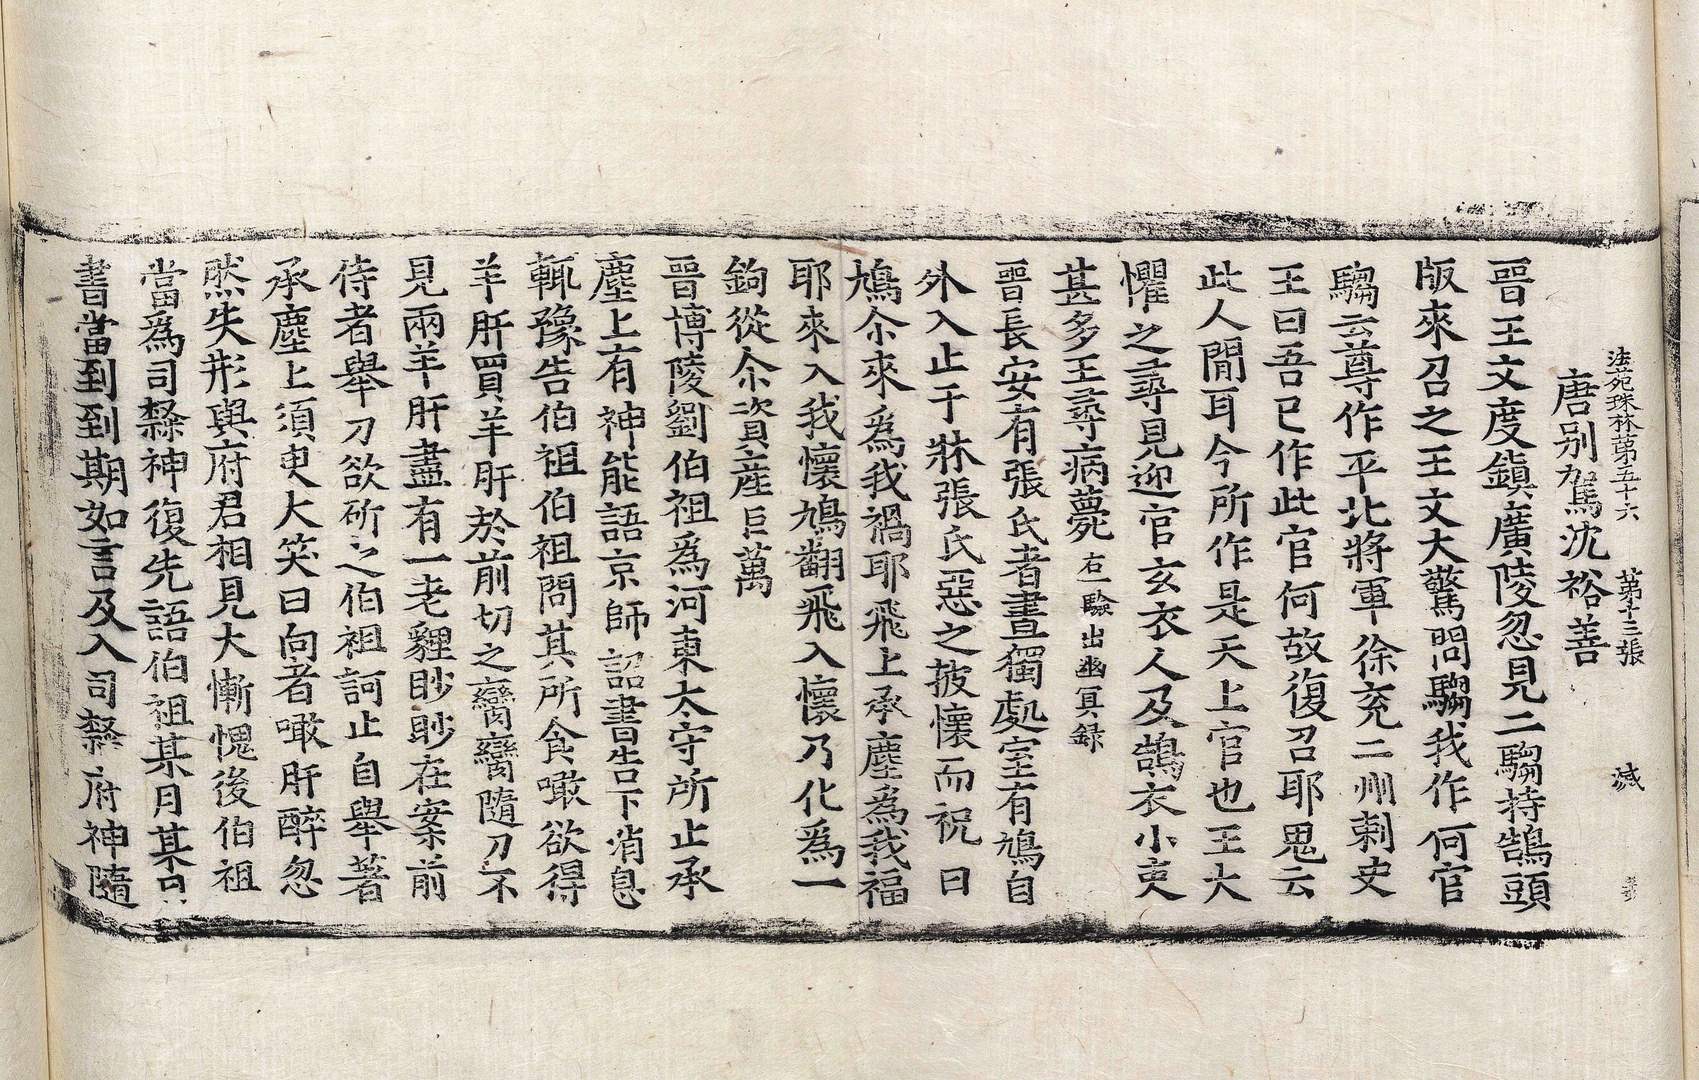 法苑珠林第五十六 第十三張 滅
唐別駕沈裕善
晉王文度鎮廣陵忽見二騶持鵠頭
版來召之王文大驚問騶我作何官
騶云尊作平北將軍徐兗二州刺史
王曰吾已作此官何故復召耶鬼云
此人間耳今所作是天上官也王大
懼之尋見迎官玄衣人及鵠衣小吏
甚多王尋病薨 右一驗出幽冥錄
晉長安有張氏者晝獨處室有鳩自
外入止于牀張氏惡之披懷而祝曰
鳩尒來爲我禍耶飛上承塵爲我福
耶來入我懷鳩翻飛入懷乃化爲一
鉤從尒資產巨萬
晉博陵劉伯祖爲河東太守所止承
塵上有神能語京師詔書告下消息
輒豫告伯祖伯祖問其所食噉欲得
羊肝買羊肝於前切之臠臠隨刀不
見兩羊肝盡有一老狸眇眇在案前
侍者舉刀欲斫之伯祖訶止自舉著
承塵上須臾大笑曰向者噉肝醉忽
然失形與府君相見大慚愧後伯祖
當爲司隸神復先語伯祖某月某日
書當到到期如言及入司隸府神隨